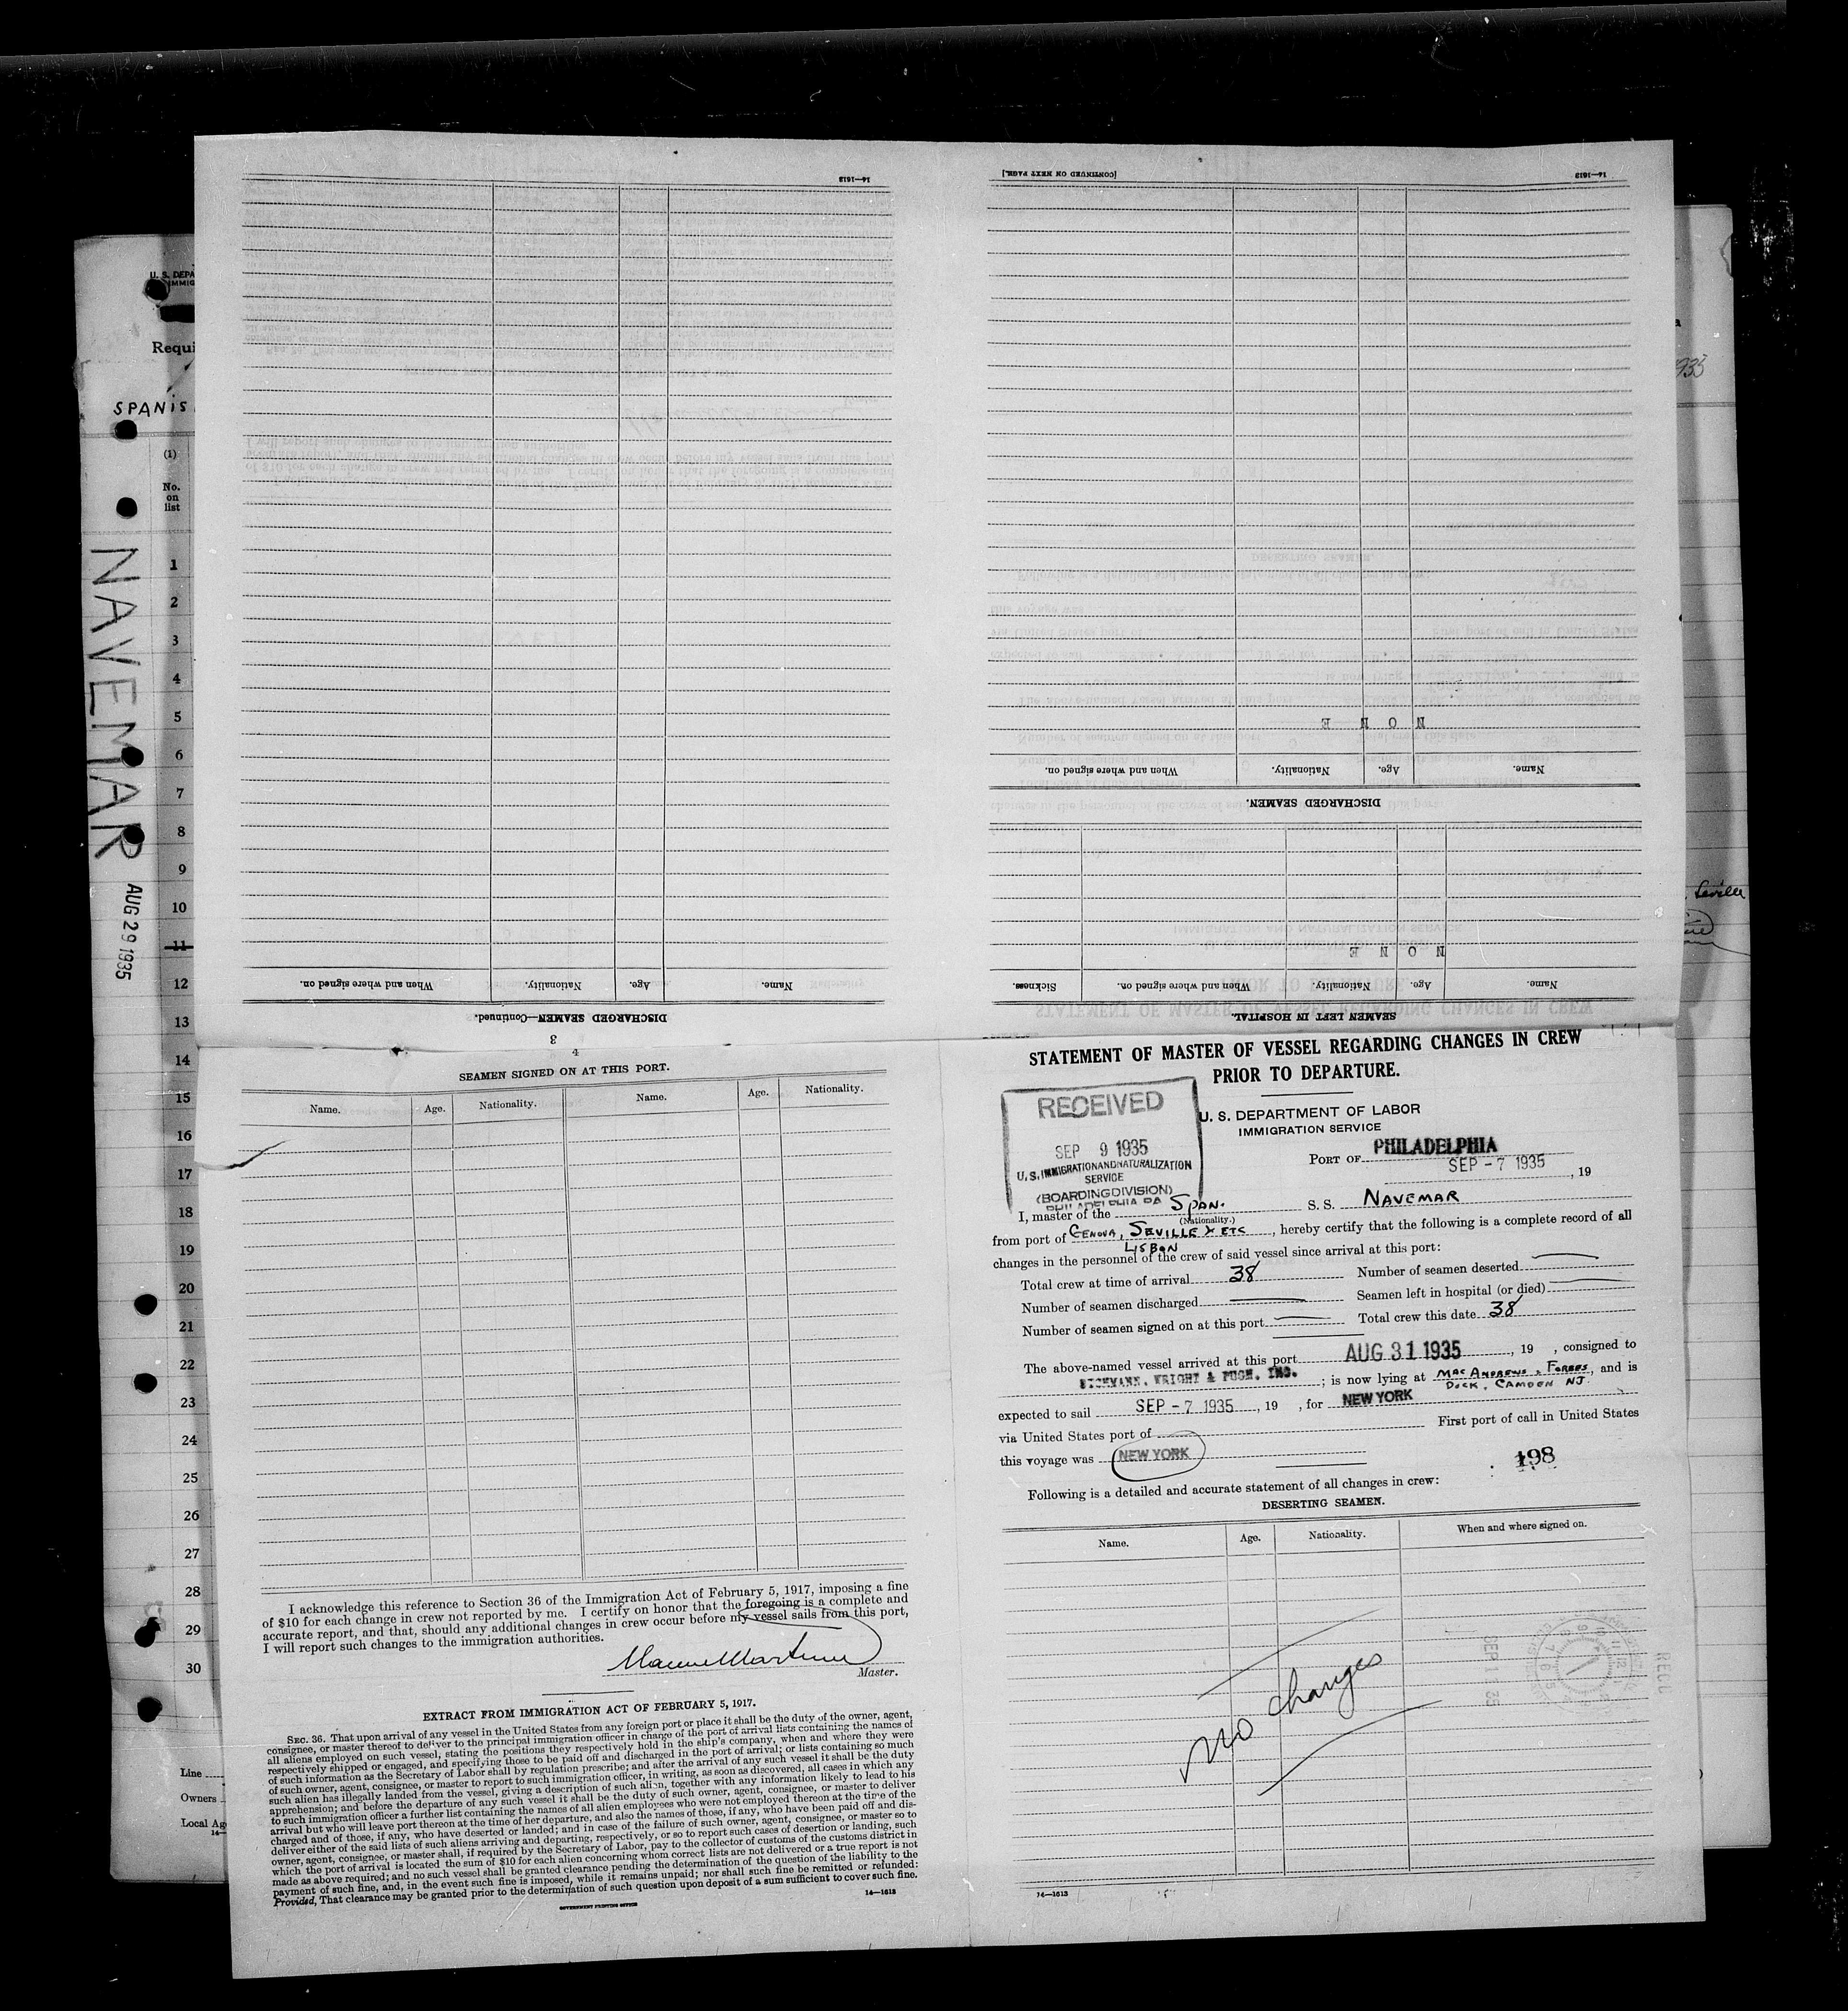 U. S. DEPA
IMMIG
Requi
SPANIS
(1)
No.
on
list
NAVEMAR
AUG 29 1935
1
2
3
4
5
6
7
8
9
10
11
12
13
14
15
16
17
18
19
20
21
22
23
24
25
26
27
28
29
30
Line
Owners
Local Ag
935
Seville
14—1613
[CONTINUED ON NEXT PAGE.]
14—1613
NONE
Name. Age. Nationality. When and where signed on.
DISCHARGED SEAMEN.
NONE
Name. Age. Nationality. When and where signed on. Sickness.
SEAMEN LEFT IN HOSPITAL.
Name. Age. Nationality. When and where signed on.
DISCHARGED SEAMEN—Continued.
3
4
SEAMEN SIGNED ON AT THIS PORT.
Name. Age. Nationality. Name. Age. Nationality.
I acknowledge this reference to Section 36 of the Immigration Act of February 5, 1917, imposing a fine
of $10 for each change in crew not reported by me. I certify on honor that the foregoing is a complete and
accurate report, and that, should any additional changes in crew occur before my vessel sails from this port,
I will report such changes to the immigration authorities.
Master.
EXTRACT FROM IMMIGRATION ACT OF FEBRUARY 5, 1917.
SEC. 36. That upon arrival of any vessel in the United States from any foreign port or place it shall be the duty of the owner, agent,
consignee, or master thereof to deliver to the principal immigration officer in charge of the port of arrival lists containing the names of
all aliens employed on such vessel, stating the positions they respectively hold in the ship's company, when and where they were
respectively shipped or engaged, and specifying those to be paid off and discharged in the port of arrival; or lists containing so much
of such information as the Secretary of Labor shall by regulation prescribe; and after the arrival of any such vessel it shall be the duty
of such owner, agent, consignee, or master to report to such immigration officer, in writing, as soon as discovered, all cases in which any
such alien has illegally landed from the vessel, giving a description of such alien, together with any information likely to lead to his
apprehension; and before the departure of any such vessel it shall be the duty of such owner, agent, consignee, or master to deliver
to such immigration officer a further list containing the names of all alien employees who were not employed thereon at the time of the
arrival but who will leave port thereon at the time of her departure, and also the names of those, if any, who have been paid off and dis-
charged and of those, if any, who have deserted or landed; and in case of the failure of such owner, agent, consignee, or master so to
deliver either of the said lists of such aliens arriving and departing, respectively, or so to report such cases of desertion or landing, such
owner, agent, consignee, or master shall, if required by the Secretary of Labor, pay to the collector of customs of the customs district in
which the port of arrival is located the sum of $10 for each alien concerning whom correct lists are not delivered or a true report is not
made as above required; and no such vessel shall be granted clearance pending the determination of the question of the liability to the
payment of such fine, and, in the event such fine is imposed, while it remains unpaid; nor shall such fine be remitted or refunded:
Provided, That clearance may be granted prior to the determination of such question upon deposit of a sum sufficient to cover such fine.
14—1613
GOVERNMENT PRINTING OFFICE
STATEMENT OF MASTER OF VESSEL REGARDING CHANGES IN CREW
PRIOR TO DEPARTURE.
RECEIVED
SEP 9 1935
U. S. IMMIGRATION AND NATURALIZATION
SERVICE
(BOARDING DIVISION)
PHILADELPHIA PA
U. S. DEPARTMENT OF LABOR
IMMIGRATION SERVICE
PORT OF PHILADELPHIA
SEP - 7 1935, 19
I, master of the SPAN. S. S. NAVEMAR
(Nationality.)
from port of GENOVA, SEVILLE & ETC, hereby certify that the following is a complete record of all
LISBON
changes in the personnel of the crew of said vessel since arrival at this port:
Total crew at time of arrival 38 Number of seamen deserted
Number of seamen discharged Seamen left in hospital (or died)
Number of seamen signed on at this port Total crew this date 38
The above-named vessel arrived at this port AUG 31 1935, 19 , consigned to
WRIGHT & PUGH, INC.; is now lying at MAC ANDREWS, FORBES, and is
DOCK, CAMDEN NJ.
expected to sail SEP - 7 1935, 19 , for NEW YORK
via United States port of First port of call in United States
this voyage was NEW YORK
198
Following is a detailed and accurate statement of all changes in crew:
DESERTING SEAMEN.
Name. Age. Nationality. When and where signed on.
No changes
14—1613